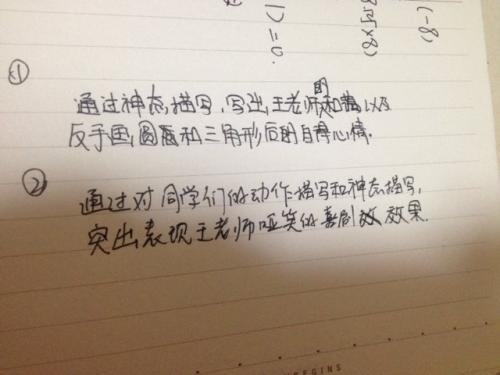 (-8)
8.5×8)
1)=0.
①
通过神态描写,写出王老师的和蔼以及
反手画圆圈和三角形后的自得心情。
②
通过对同学们的动作描写和神态描写,
突出表现王老师哑笑的喜剧效果.
BEGINS